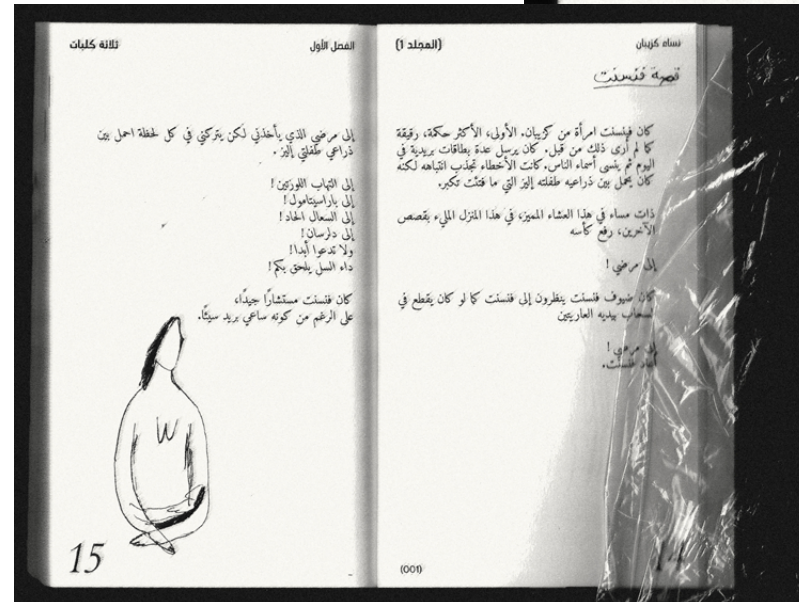 نساء كزيبان
(المجلد 1)
قصة فنسنت
كان فينسنت امرأة من كزيبان. الأولى، الأكثر حكمة، رقيقة
كما لم أرى ذلك من قبل. كان يرسل عدة بطاقات بريدية في
اليوم ثم ينسى أسماء الناس. كانت الأخطاء تجذب انتباهه لكنه
كان يحمل بين ذراعيه طفلته إليز التي ما فتئت تكبر.
ذات مساء في هذا العشاء المميز، في هذا المنزل المليء بقصص
الآخرين، رفع كأسه
إلى مرضي !
كان ضيوف فنسنت ينظرون إلى فنسنت كما لو كان يقطع في
السحاب بيديه العاريتين
إلى مرضي !
أعاد فنسنت.
(001)
14
الفصل الأول
ثلاثة كلبات
إلى مرضي الذي يأخذني لكن يتركني في كل لحظة احمل بين
ذراعي طفلتي إليز .
إلى التهاب اللوزتين !
إلى باراسيتامول !
إلى السعال الحاد !
إلى دلرسان !
ولا تدعوا أبدا !
داء السل يلحق بكم !
كان فنسنت مستشارًا جيدًا،
على الرغم من كونه ساعي بريد سيئًا.
15